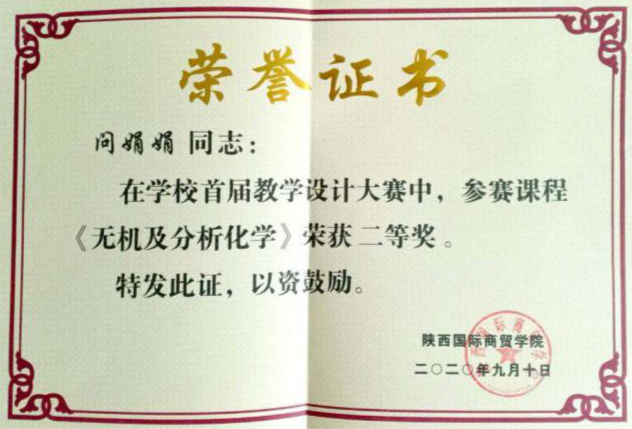 荣誉证书
问娟娟 同志：
在学校首届教学设计大赛中，参赛课程
《无机及分析化学》荣获 二等奖 。
特发此证，以资鼓励。
陕西国际商贸学院
二〇二〇年九月十日